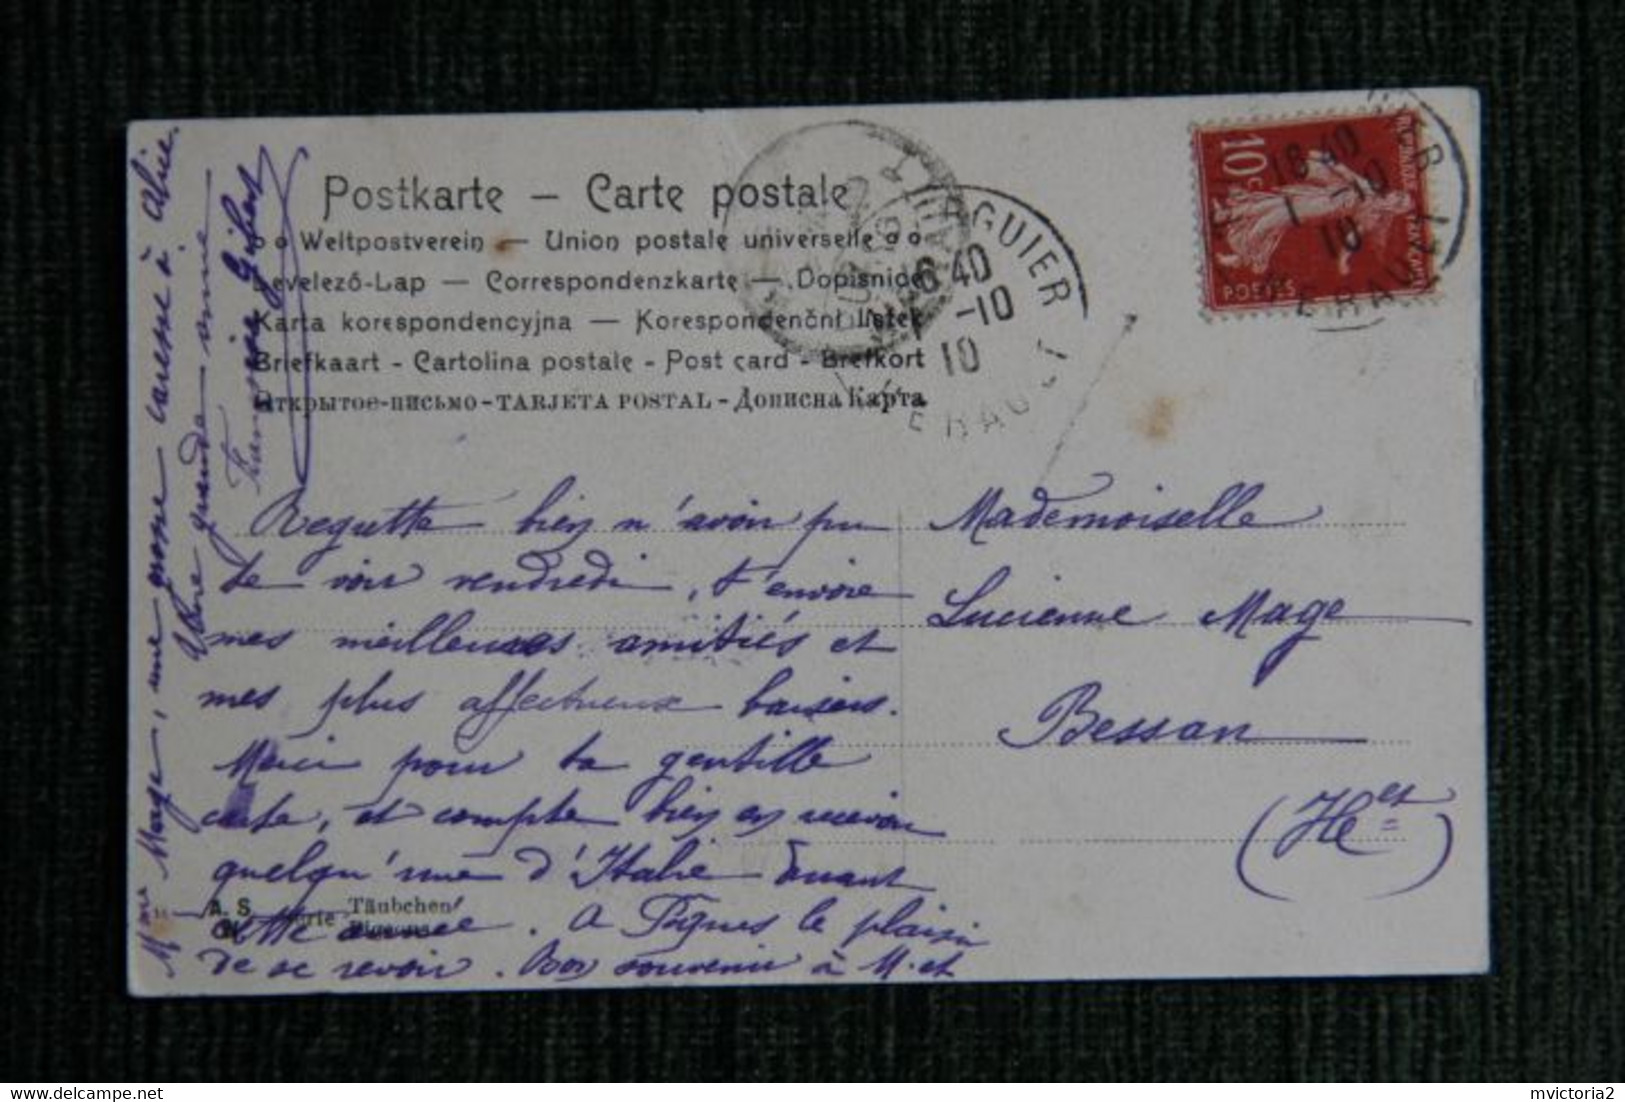 Postkarte – Carte postale
Weltpostverein — Union postale universelle
Levelező-Lap — Correspondenzkarte — Dopisnice
Karta korespondencyjna — Korespondenční lístek
Briefkaart - Cartolina postale - Post card - Brefkort
Открытое-письмо - TARJETA POSTAL - Дописна Карта
10
POSTES
18 40
1 -10
10
HERAULT
GUIER
40
-10
10
Regutte bien n'avoir pu
te voir vendredi, t'envoie
mes meilleures amitiés et
mes plus affectueux baisers.
Merci pour ta gentille
carte, et compte bien en recevoir
quelqu'une d'Italie durant
cette année. A Pâques le plaisir
de se revoir. Bon souvenir à M. et
Mme Mage, une grosse caresse à
Votre grande amie
Gibert
Mademoiselle
Lucienne Mage
Bessan
(Het)
A. S.
Série Täubchen
Pigeons
mvictoria2